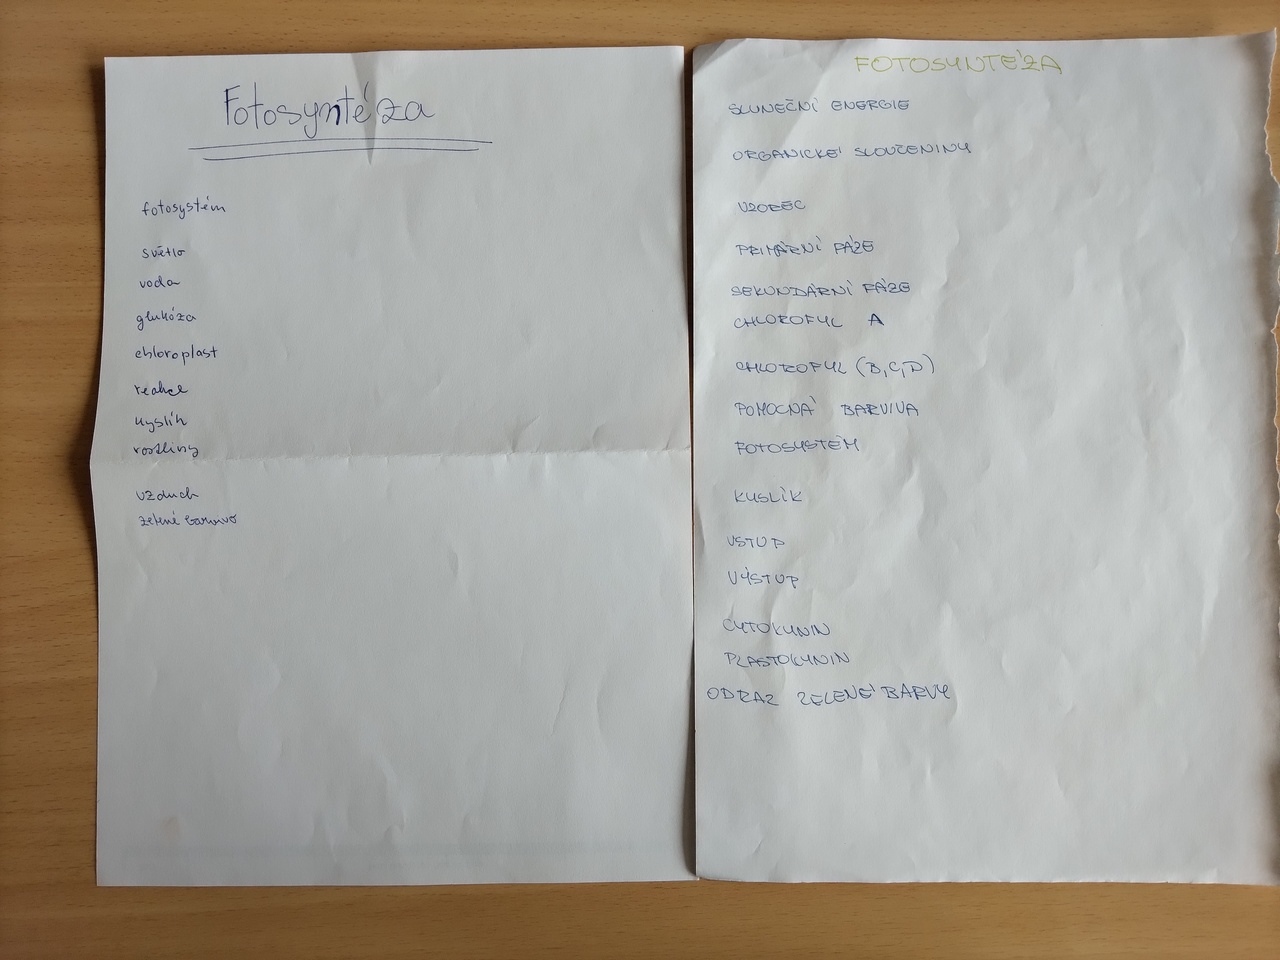 Fotosyntéza
fotosystém
světlo
voda
glukóza
chloroplast
reakce
kyslík
rostliny
vzduch
zelené barvivo
FOTOSYNTÉZA
SLUNEČNÍ ENERGIE
ORGANICKÉ SLOUČENINY
VZOREC
PRIMÁRNÍ FÁZE
SEKUNDÁRNÍ FÁZE
CHLOROFYL A
CHLOROFYL (B,C,D)
POMOCNÁ BARVIVA
FOTOSYSTÉM
KYSLÍK
VSTUP
VÝSTUP
CYTOKYNIN
PLASTOKYNIN
ODRAZ ZELENÉ BARVY